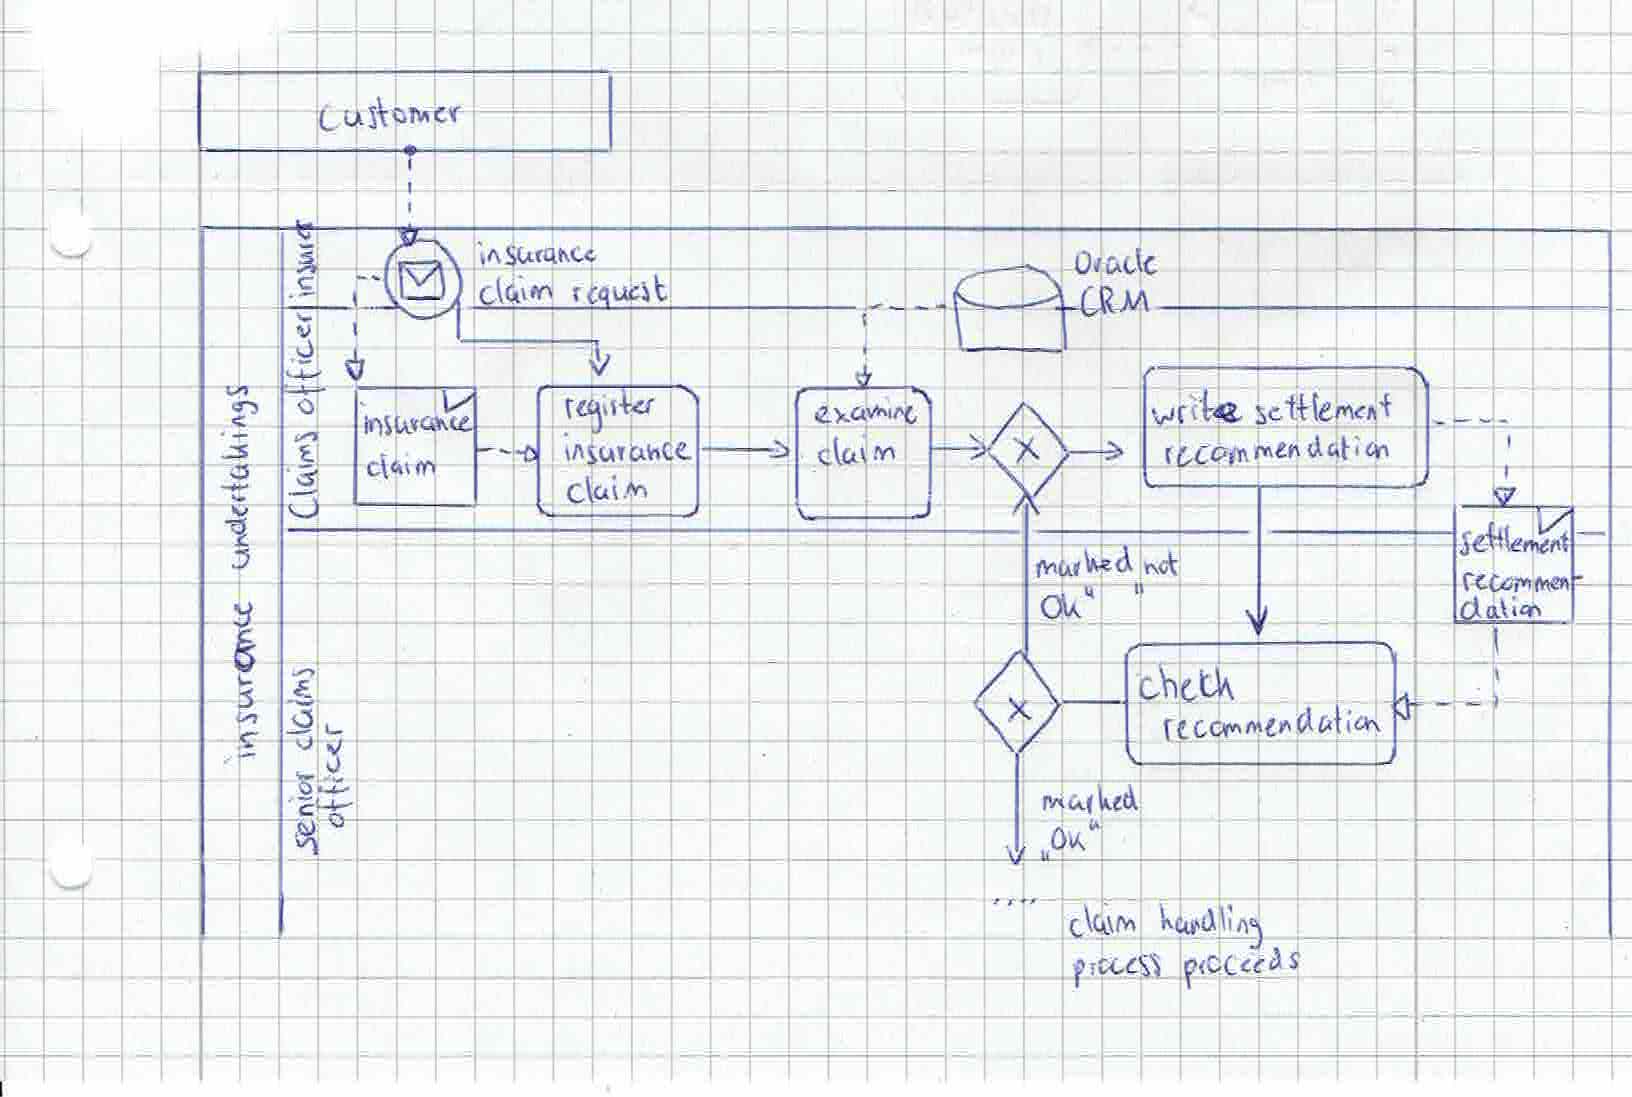 Customer
insurance
claim request
Oracle
CRM
insurance undertakings
Claims officer/insurer
insurance
claim
register
insurance
claim
examine
claim
X
write settlement
recommendation
settlement
recommen-
dation
marked not
Ok" "
senior claims
officer
X
check
recommendation
marked
„Ok“
....
claim handling
process proceeds